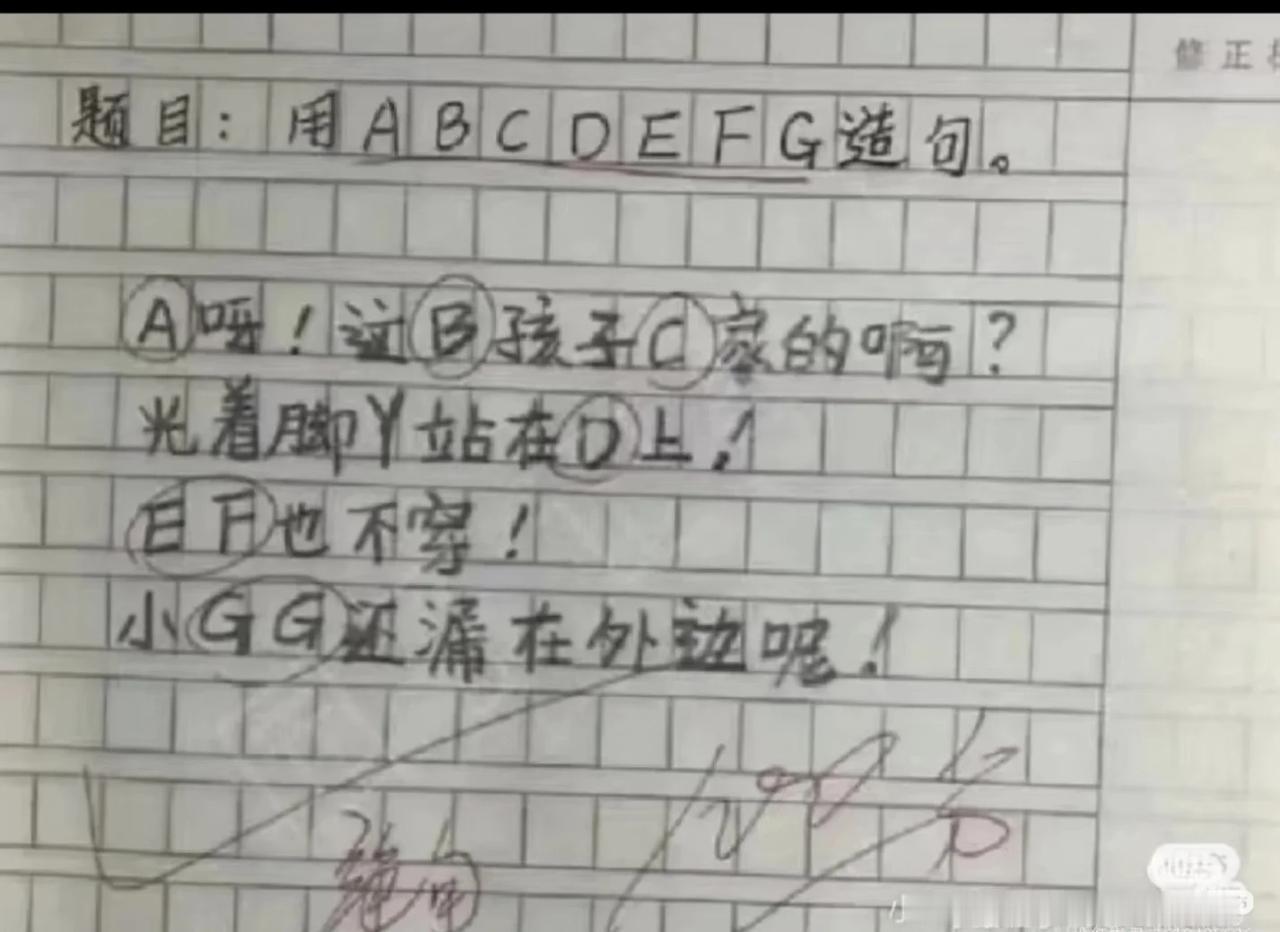 修正
题目：用ABCDEFG造句。
A呀！这B孩子C家的啊？
光着脚丫站在D上！
EF也不穿！
小GG还漏在外边呢！